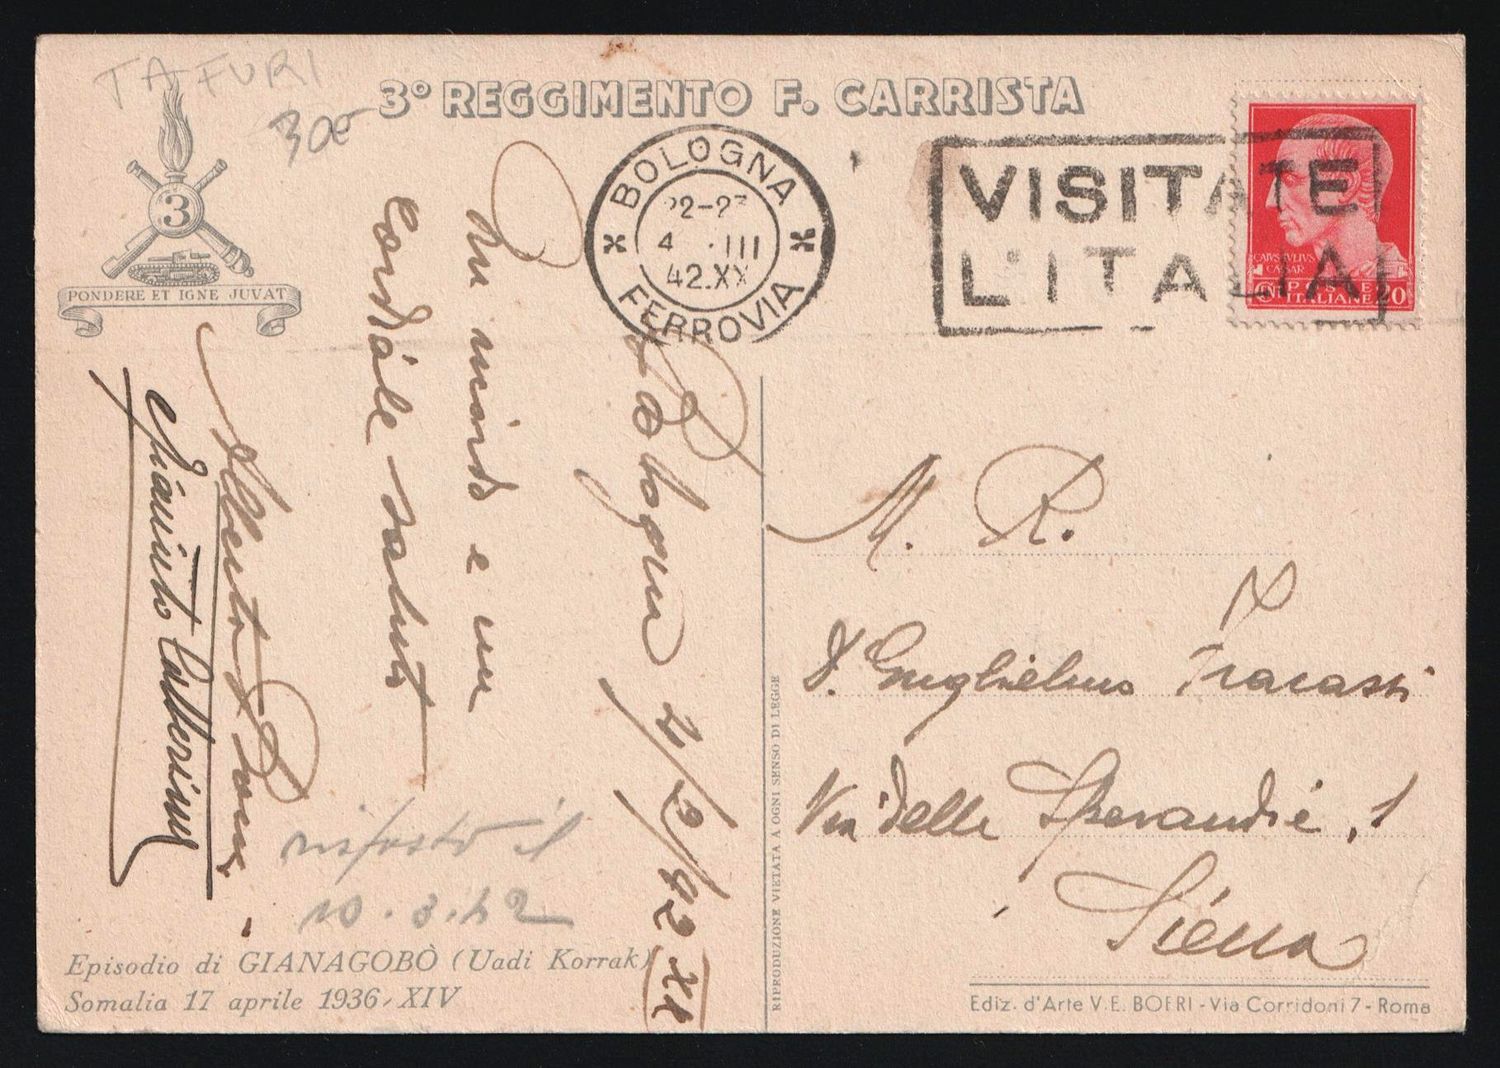 TAFURI
300
3º REGGIMENTO F. CARRISTA
3
PONDERE ET IGNE JUVAT
BOLOGNA
22-23
4 . III
42.XX
FERROVIA
VISITATE
L'ITALIA
CAIVS IVLIVS
CAESAR
POSTE
ITALIANE 20
Bologna 2/3/42 XX
Un ricordo e un
cordiale saluto
Alberto
Giacinto
risposto il
10.3.42
M. R.
D. Guglielmo Fracassi
Via delle Sperandie, 1
Siena
RIPRODUZIONE VIETATA A OGNI SENSO DI LEGGE
Episodio di GIANAGOBÒ (Uadi Korrak)
Somalia 17 aprile 1936, XIV
Ediz. d'Arte V. E. BOERI - Via Corridoni 7 - Roma